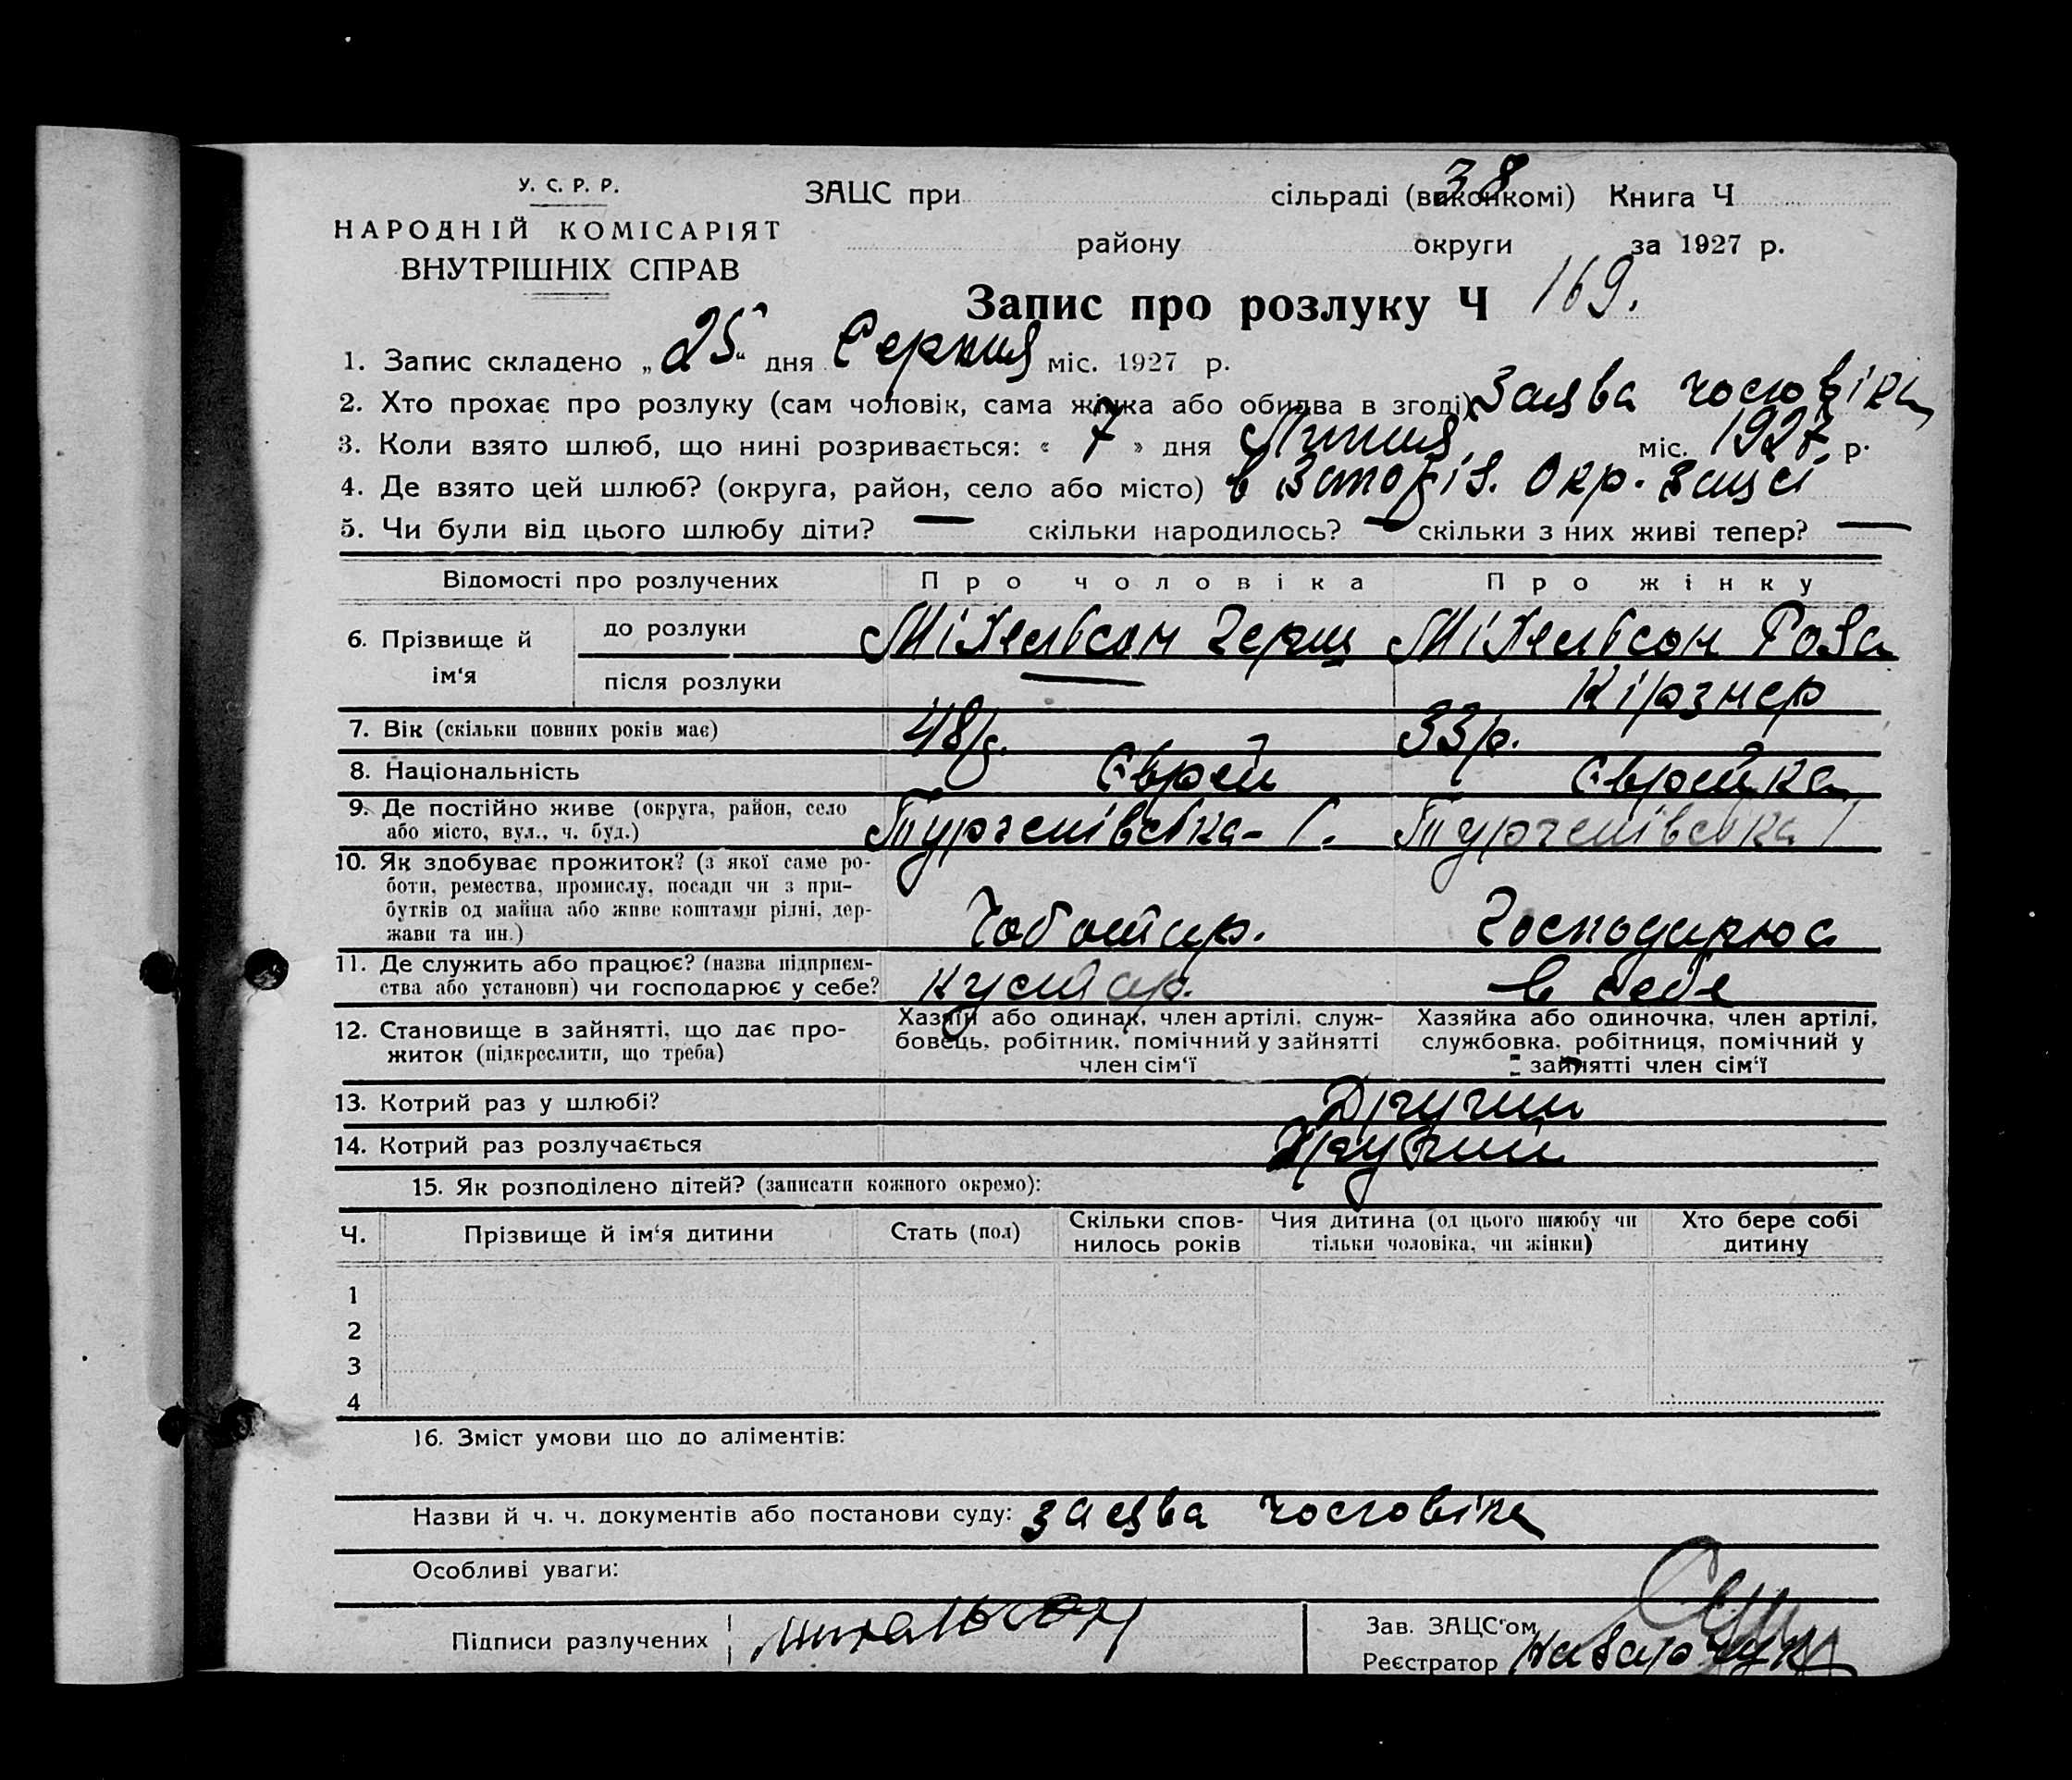 38
У. С. Р. Р.
НАРОДНІЙ КОМІСАРІЯТ
ВНУТРІШНІХ СПРАВ
ЗАЦС при сільраді (виконкомі) Книга Ч
району округи за 1927 р.
Запис про розлуку Ч 169.
1. Запис складено „25“ дня Серпня міс. 1927 р.
2. Хто прохає про розлуку (сам чоловік, сама жінка або обидва в згоді) Заява чоловіка
3. Коли взято шлюб, що нині розривається: « 7 » дня Липня міс. 1927 р.
4. Де взято цей шлюб? (округа, район, село або місто) в Запоріз. Окр. Зацсі
5. Чи були від цього шлюбу діти? — скільки народилось? — скільки з них живі тепер? —
Відомості про розлучених Про чоловіка Про жінку
6. Прізвище й ім‘я
до розлуки Міхельсон Герш Міхельсон Роза
після розлуки — Кірзнер
7. Вік (скільки повних років має) 48 р. 33 р.
8. Національність Єврей Єврейка
9. Де постійно живе (округа, район, село
або місто, вул., ч. буд.) Тургенівська
10. Як здобуває прожиток? (з якої саме ро-
боти, ремества, промислу, посади чи з при-
бутків од майна або живе коштами рідні, дер-
жави та ин.) Чоботар. Господарює
11. Де служить або працює? (назва підприєм-
ства або установи) чи господарює у себе? Кустар. в себе
12. Становище в зайнятті, що дає про-
житок (підкреслити, що треба)
Хазяїн або одинак, член артілі, служ-
бовець, робітник, помічний у зайнятті
член сім‘ї
Хазяйка або одиночка, член артілі,
службовка, робітниця, помічний у
зайнятті член сім‘ї
13. Котрий раз у шлюбі? Другий
14. Котрий раз розлучається Другий
15. Як розподілено дітей? (записати кожного окремо):
Ч. Прізвище й ім‘я дитини Стать (пол) Скільки спов-
нилось років Чия дитина (од цього шлюбу чи
тільки чоловіка, чи жінки) Хто бере собі
дитину
1
2
3
4
16. Зміст умови що до аліментів:
Назви й ч. ч. документів або постанови суду: заява чоловіка
Особливі уваги:
Підписи разлучених Михельсон
Зав. ЗАЦС‘ом
Реєстратор